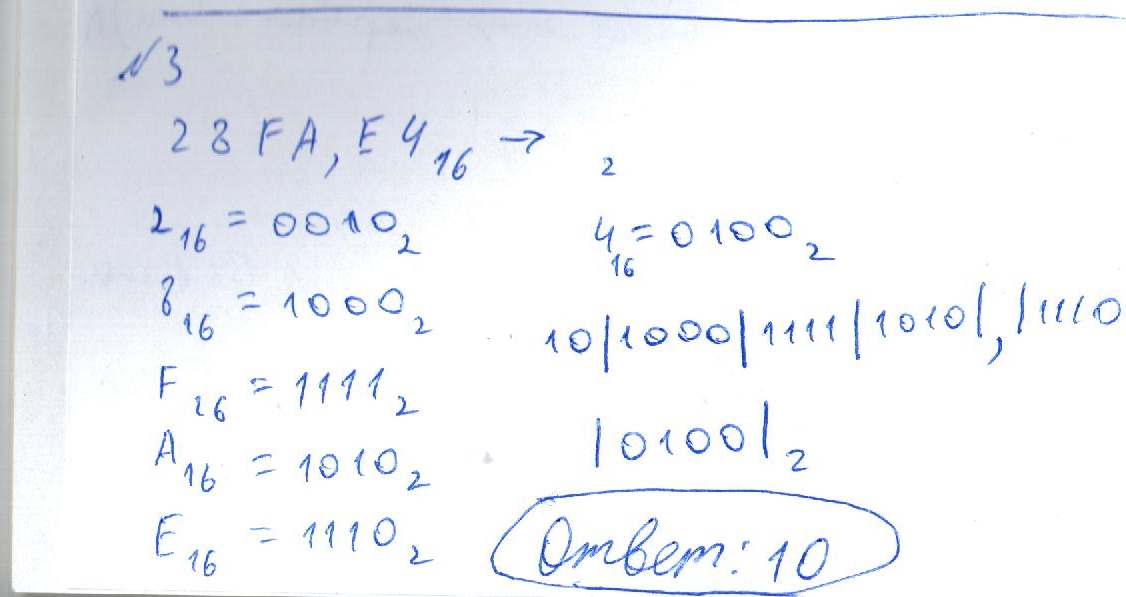 №3
28FA,E4₁₆ → ₂
2₁₆ = 0010₂
8₁₆ = 1000₂
F₁₆ = 1111₂
A₁₆ = 1010₂
E₁₆ = 1110₂
4₁₆ = 0100₂
10|1000|1111|1010|,|1110
|0100|₂
Ответ: 10